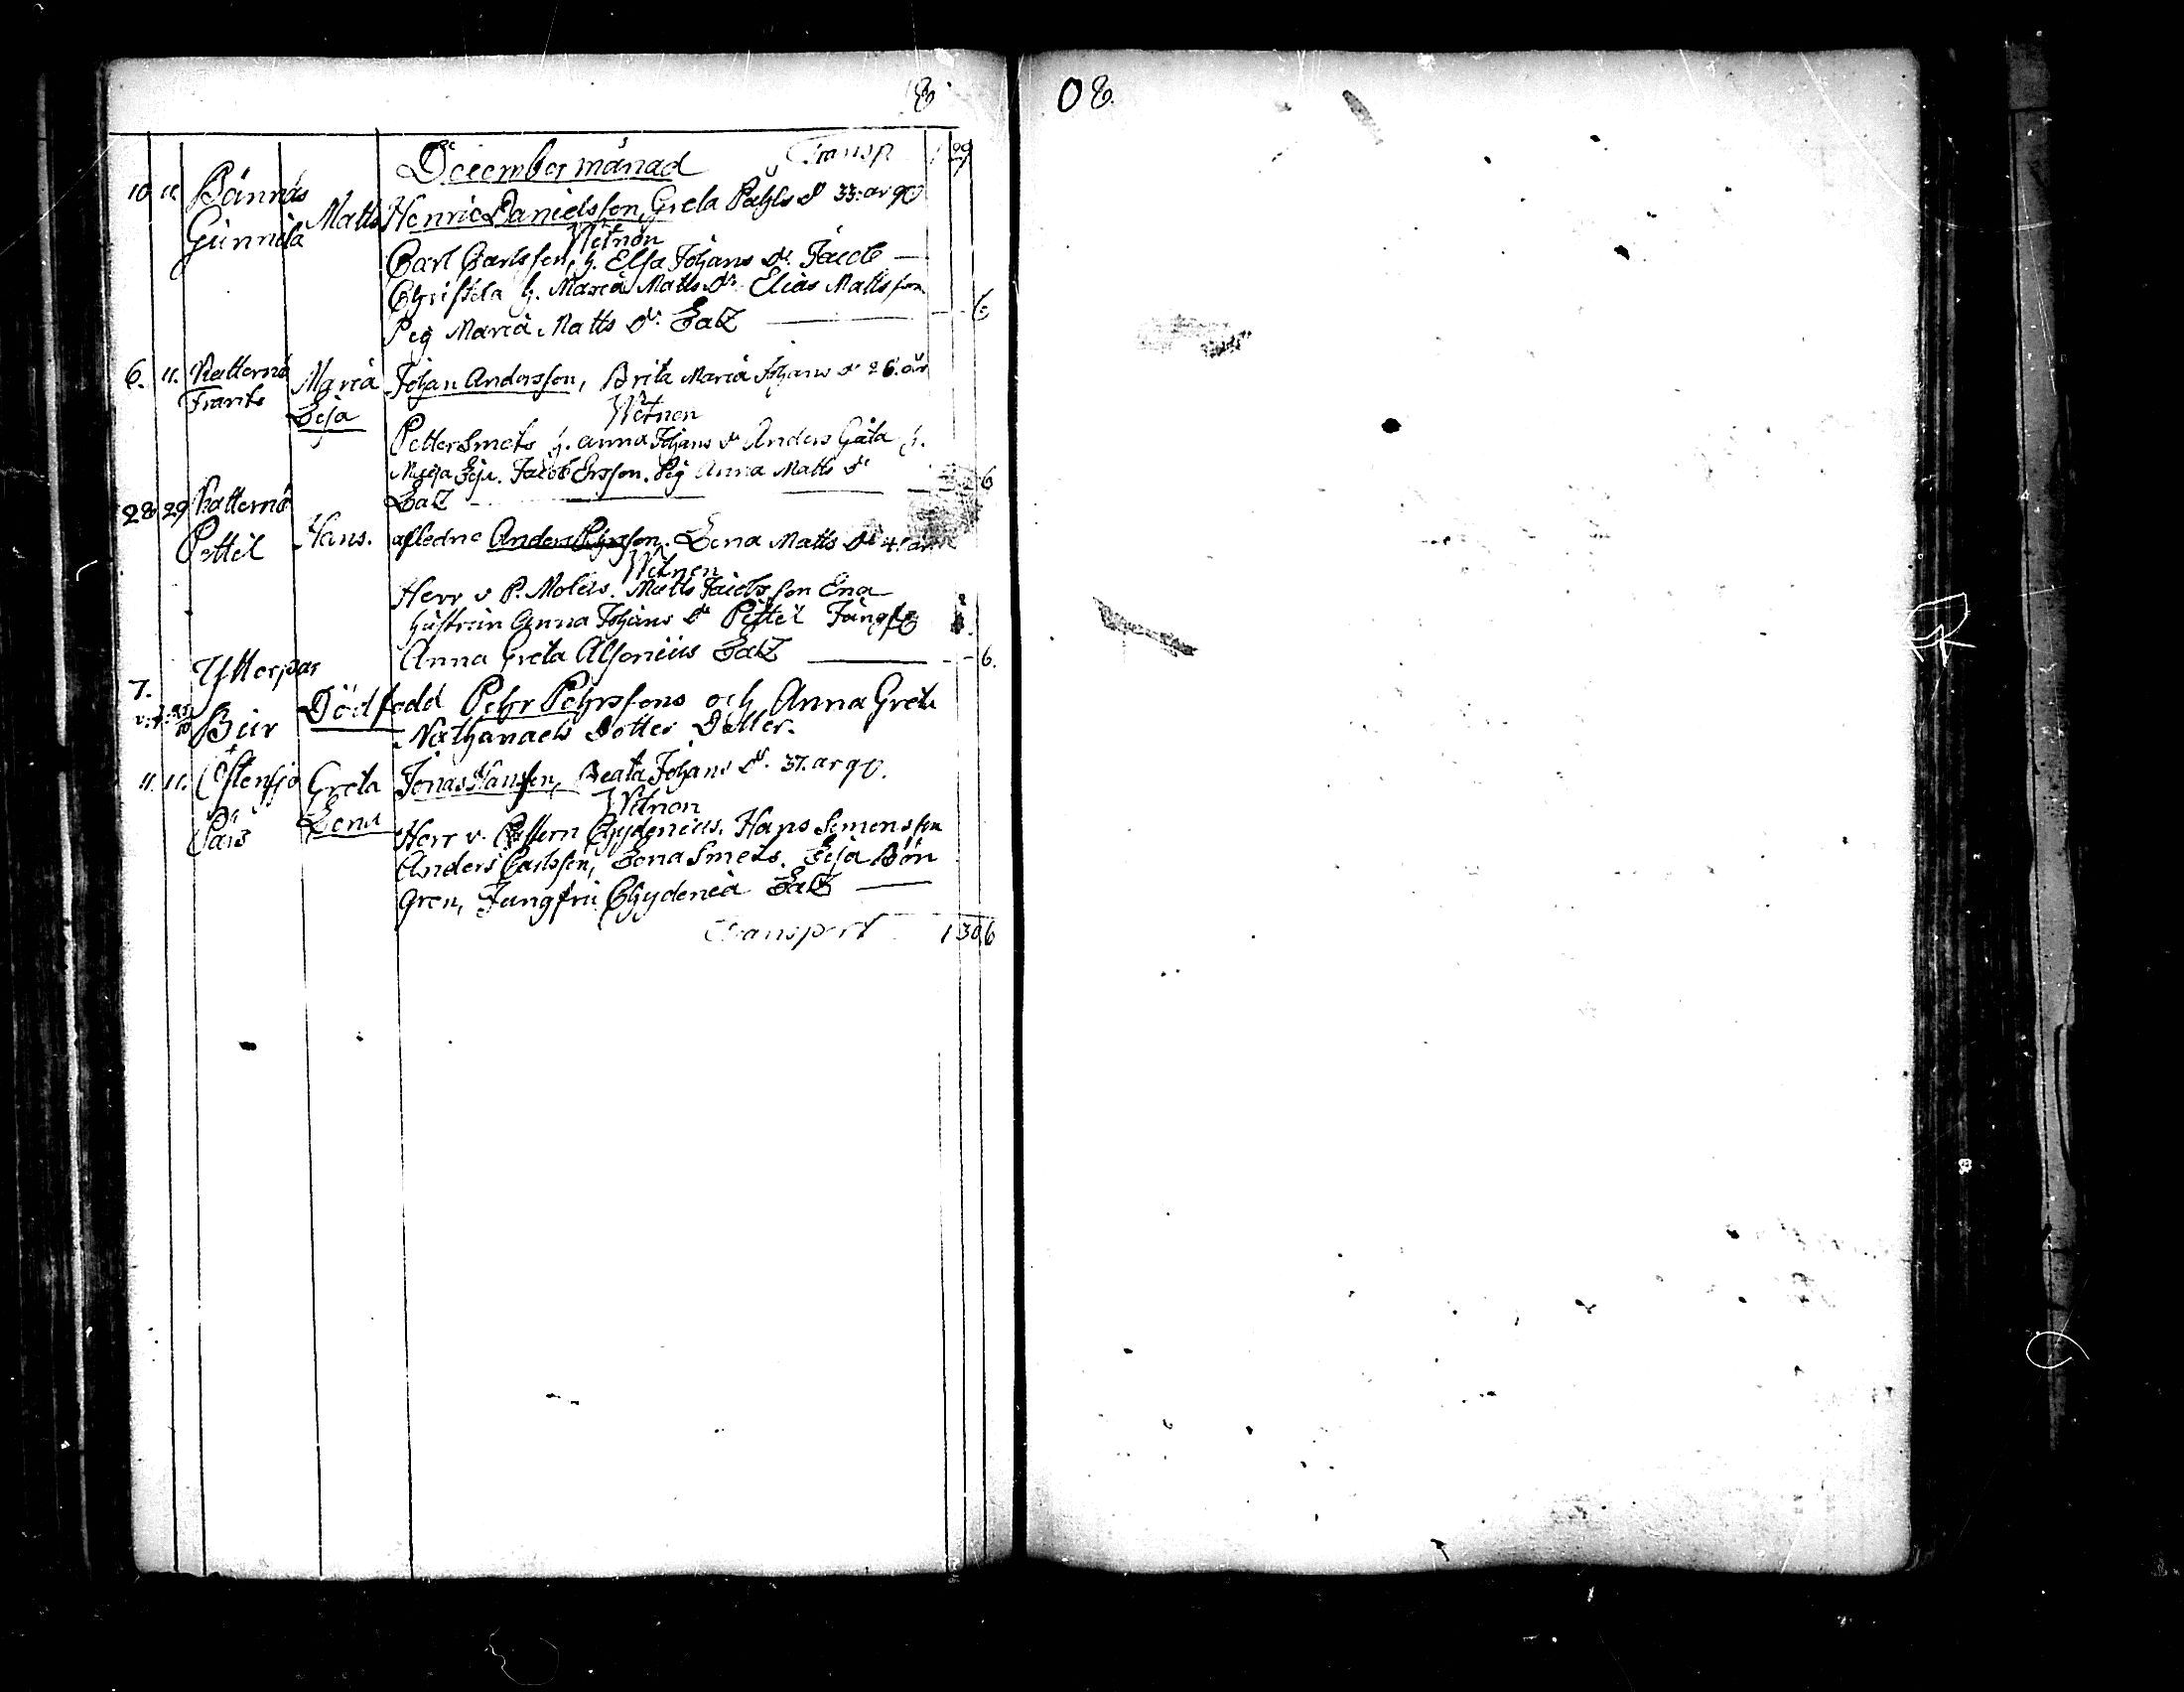 18
08.
December månad Transp 1 29
10 11. Bännäs
Gunnila Matts Henric Danielsson, Greta Påhls dr 33: år gl
Witnen
Carl Carlsson, h. Elsa Johans dr. Jacob —
Christila h. Maria Matts dr. Elias Mattsson
Pig Maria Matts dr. 6
6. 11. Katternö Maria Johan Andersson, Brita Maria Johans dr 26. år
Lisa Witnen
Petter Smeds h. Anna Johans dr Anders Gåla h.
Maja Lisa. Jacob Ersson. Pig Anna Matts dr 6
28 29 Katternö
Pettil Hans. afledne Anders Pehrsson. Lena Matts dr
Witnen
Herr v P. Moleus. Matts Jacobsson Ena
hustrun Anna Johans dr Pettil Jungfr
Anna Greta Alfonius 6.
7. Ytteresse
Bur Dödfödd Pehr Pehrssons och Anna Greta
Nathanaels Dotter Dotter.
11. 11. Östensjö Greta Jonas Hansson, Beata Johans dr. 37. år gl.
Lena Witnen
Herr v. Pastorn Chydenius. Hans Simonsson
Anders Carlsson, Lena Smeds. Lisa Bön
gren, Jungfru Chydenia
Transport 1 30 6